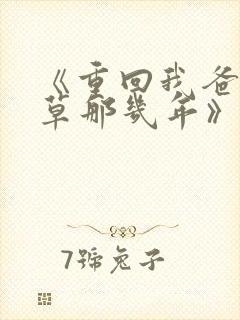 《重回我爸
草那幾年》
7號兔子